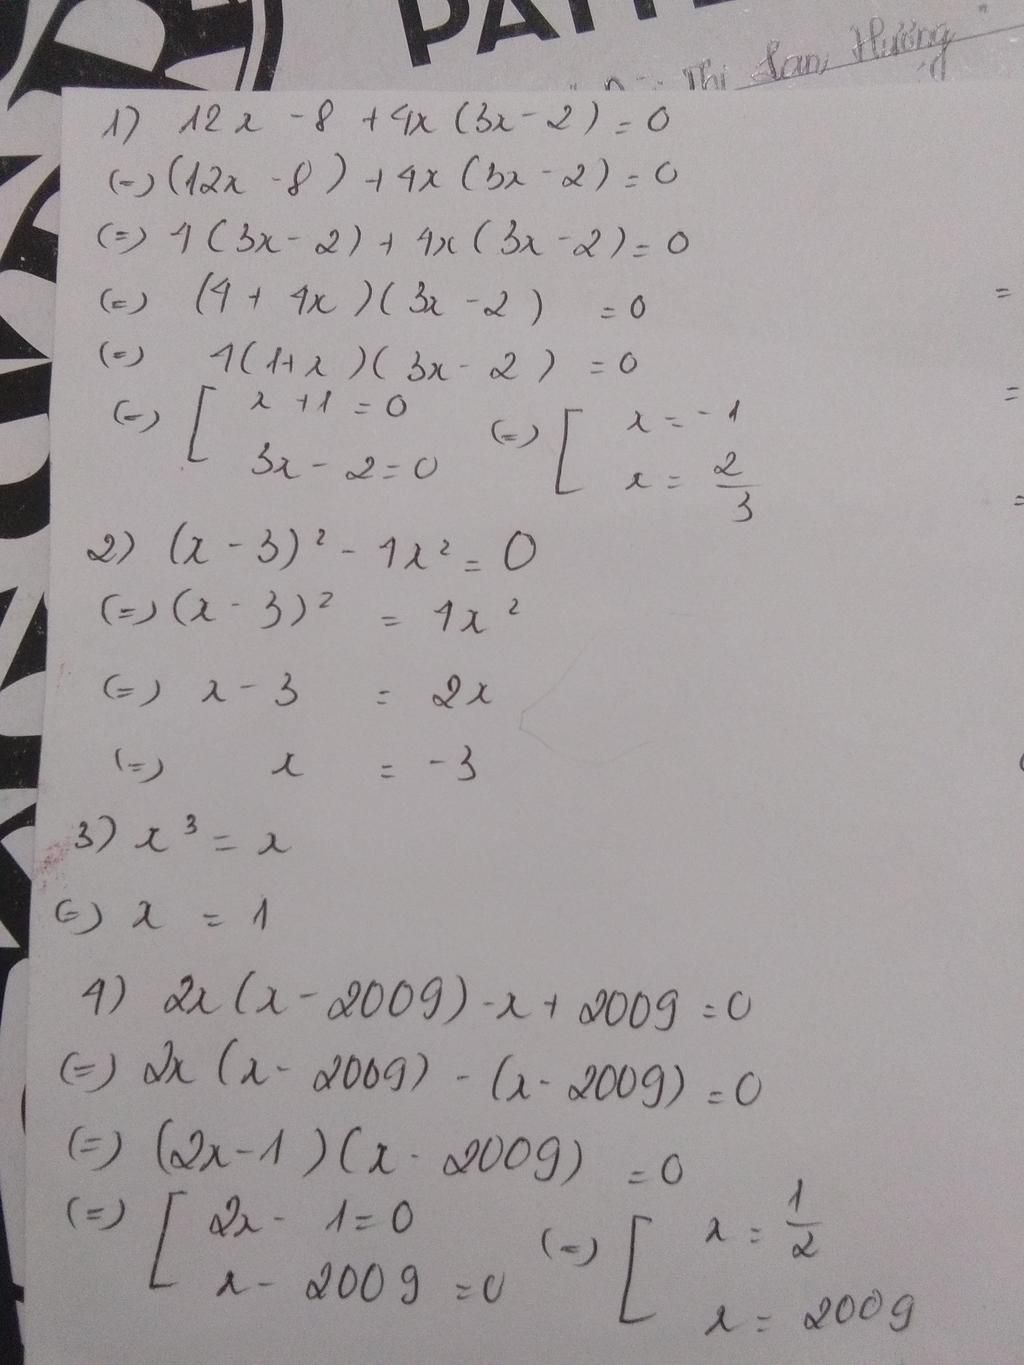 PATTE
Thị Lan Hương
1) 12x - 8 + 4x (3x - 2) = 0
(=) (12x - 8) + 4x (3x - 2) = 0
(=) 4 (3x - 2) + 4x (3x - 2) = 0
(=) (4 + 4x) (3x - 2) = 0
(=) 4 (1 + x) (3x - 2) = 0
(=) [ x + 1 = 0 (=) [ x = -1
3x - 2 = 0 x = 2/3
2) (x - 3)² - 4x² = 0
(=) (x - 3)² = 4x²
(=) x - 3 = 2x
(=) x = -3
3) x³ = x
(=) x = 1
4) 2x (x - 2009) - x + 2009 = 0
(=) 2x (x - 2009) - (x - 2009) = 0
(=) (2x - 1) (x - 2009) = 0
(=) [ 2x - 1 = 0 (=) [ x = 1/2
x - 2009 = 0 x = 2009